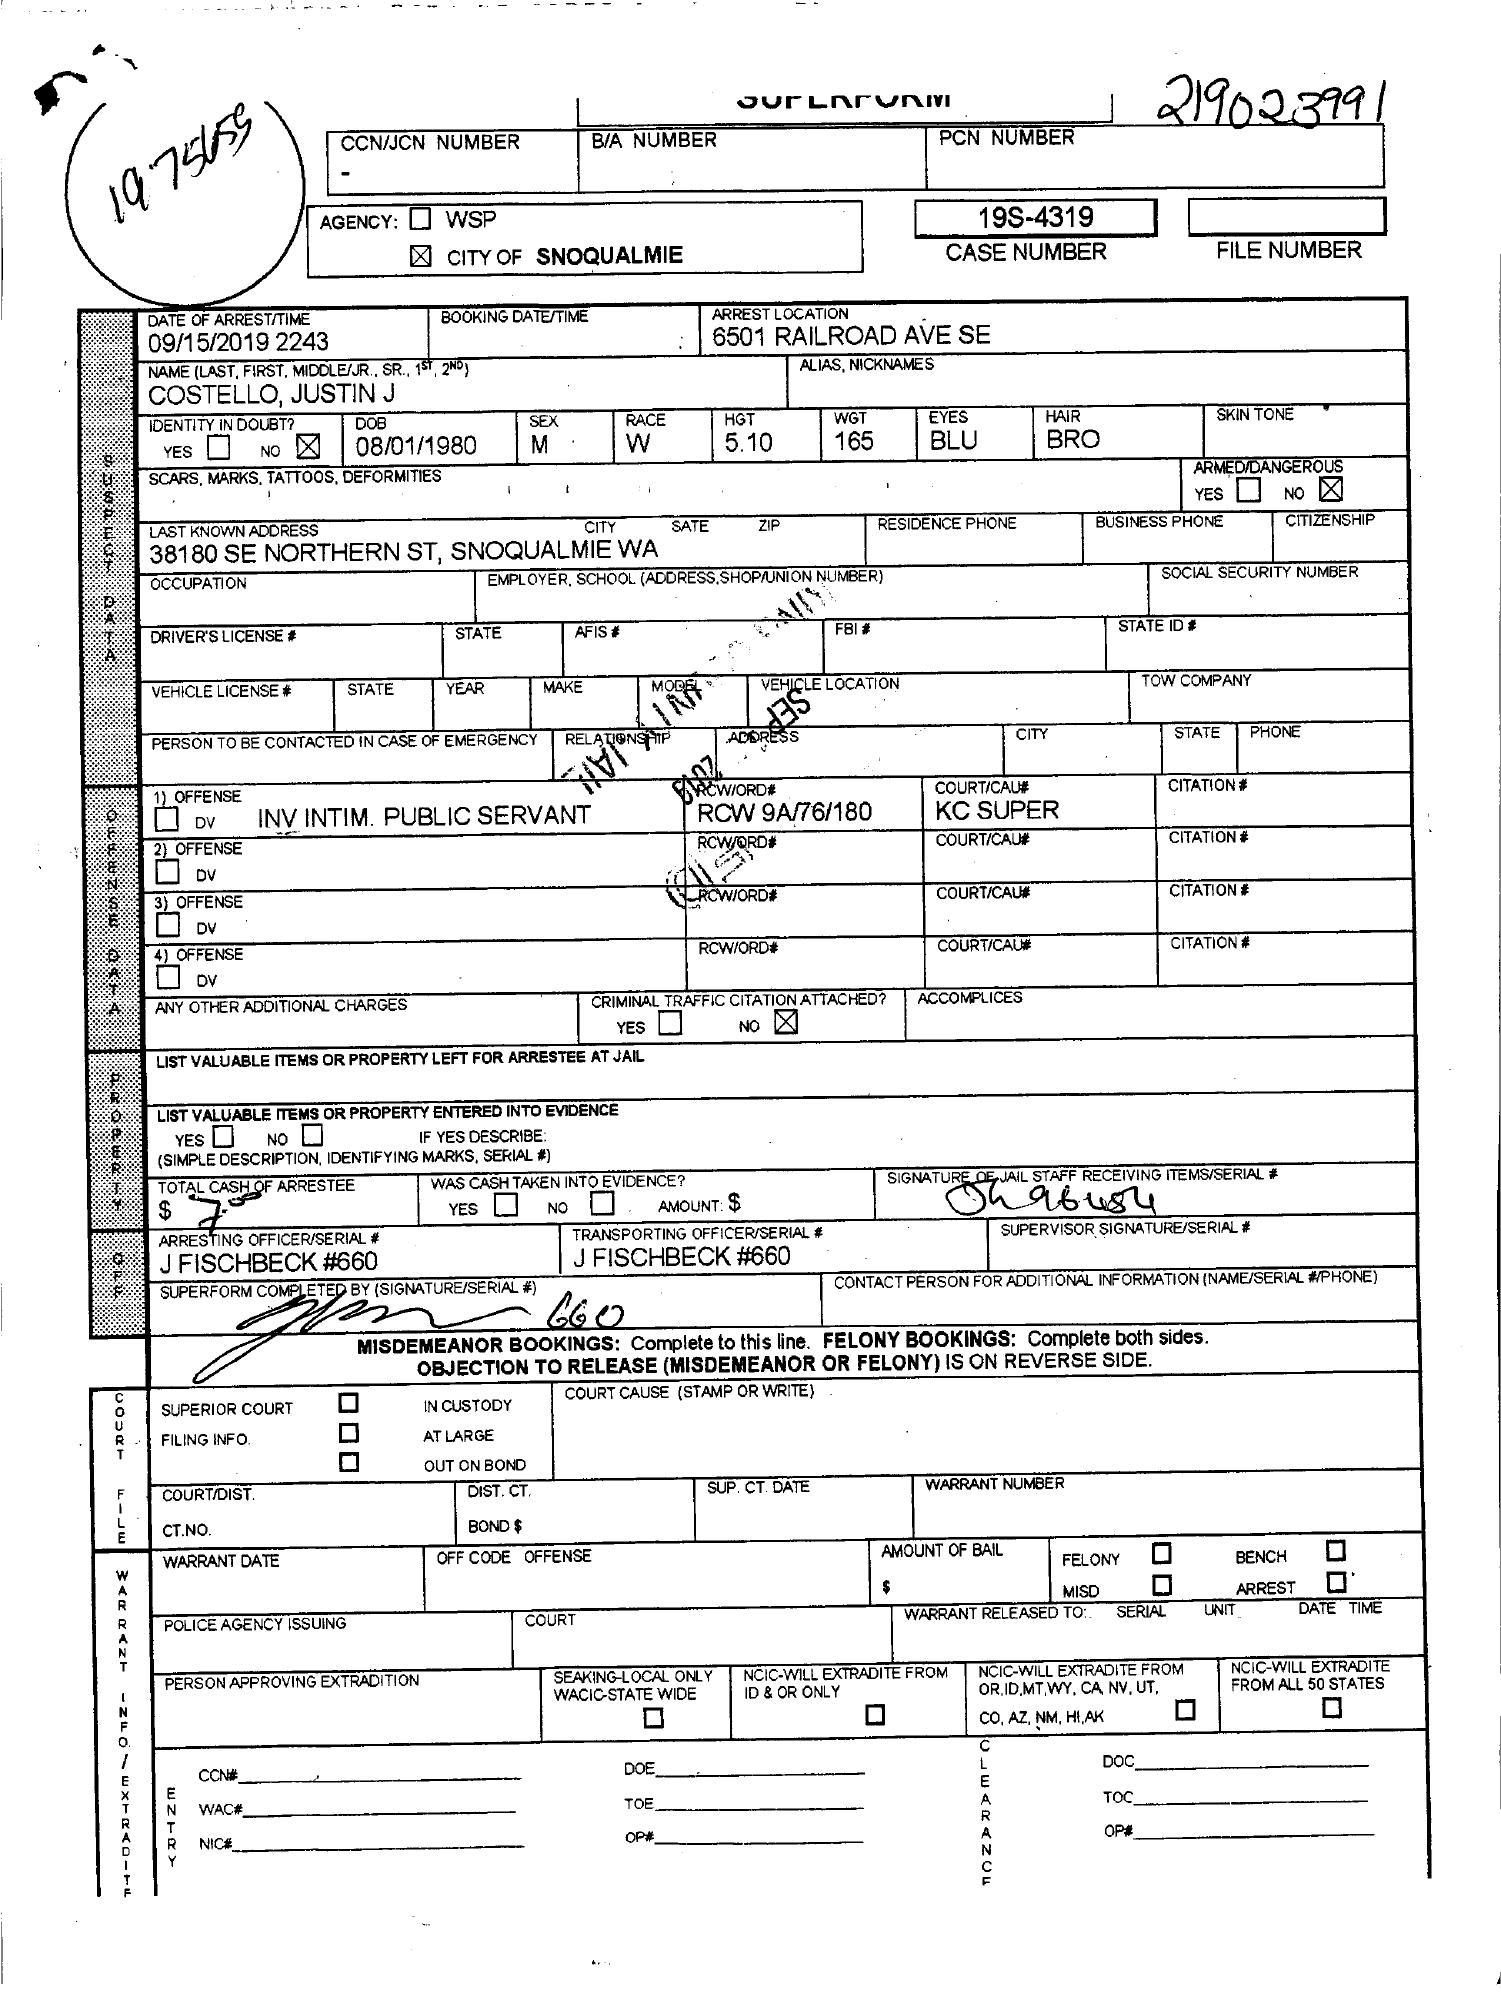 SUPERFORM
219023991
CCN/JCN NUMBER B/A NUMBER PCN NUMBER
-
AGENCY: ☐ WSP
☒ CITY OF SNOQUALMIE
19S-4319
CASE NUMBER FILE NUMBER
DATE OF ARREST/TIME BOOKING DATE/TIME ARREST LOCATION
09/15/2019 2243 : 6501 RAILROAD AVE SE
NAME (LAST, FIRST, MIDDLE/JR., SR., 1ST, 2ND) ALIAS, NICKNAMES
COSTELLO, JUSTIN J
IDENTITY IN DOUBT? DOB SEX RACE HGT WGT EYES HAIR SKIN TONE
YES ☐ NO ☒ 08/01/1980 M W 5.10 165 BLU BRO
SCARS, MARKS, TATTOOS, DEFORMITIES ARMED/DANGEROUS
YES ☐ NO ☒
LAST KNOWN ADDRESS CITY SATE ZIP RESIDENCE PHONE BUSINESS PHONE CITIZENSHIP
38180 SE NORTHERN ST, SNOQUALMIE WA
OCCUPATION EMPLOYER, SCHOOL (ADDRESS,SHOP/UNION NUMBER) SOCIAL SECURITY NUMBER
DRIVER'S LICENSE # STATE AFIS # FBI # STATE ID #
VEHICLE LICENSE # STATE YEAR MAKE MODEL VEHICLE LOCATION TOW COMPANY
PERSON TO BE CONTACTED IN CASE OF EMERGENCY RELATIONSHIP ADDRESS CITY STATE PHONE
SUSPECT DATA
JAIL
SEP
2019
1) OFFENSE RCW/ORD# COURT/CAU# CITATION #
☐ DV INV INTIM. PUBLIC SERVANT RCW 9A/76/180 KC SUPER
2) OFFENSE RCW/ORD# COURT/CAU# CITATION #
☐ DV
3) OFFENSE RCW/ORD# COURT/CAU# CITATION #
☐ DV
4) OFFENSE RCW/ORD# COURT/CAU# CITATION #
☐ DV
ANY OTHER ADDITIONAL CHARGES CRIMINAL TRAFFIC CITATION ATTACHED? ACCOMPLICES
YES ☐ NO ☒
OFFENSE DATA
LIST VALUABLE ITEMS OR PROPERTY LEFT FOR ARRESTEE AT JAIL
LIST VALUABLE ITEMS OR PROPERTY ENTERED INTO EVIDENCE
YES ☐ NO ☐ IF YES DESCRIBE:
(SIMPLE DESCRIPTION, IDENTIFYING MARKS, SERIAL #)
TOTAL CASH OF ARRESTEE WAS CASH TAKEN INTO EVIDENCE? SIGNATURE OF JAIL STAFF RECEIVING ITEMS/SERIAL #
$ 7.00 YES ☐ NO ☐ AMOUNT: $
PROPERTY
ARRESTING OFFICER/SERIAL # TRANSPORTING OFFICER/SERIAL # SUPERVISOR SIGNATURE/SERIAL #
J FISCHBECK #660 J FISCHBECK #660
SUPERFORM COMPLETED BY (SIGNATURE/SERIAL #) CONTACT PERSON FOR ADDITIONAL INFORMATION (NAME/SERIAL #/PHONE)
660
OFF
MISDEMEANOR BOOKINGS: Complete to this line. FELONY BOOKINGS: Complete both sides.
OBJECTION TO RELEASE (MISDEMEANOR OR FELONY) IS ON REVERSE SIDE.
SUPERIOR COURT ☐ IN CUSTODY COURT CAUSE (STAMP OR WRITE)
FILING INFO. ☐ AT LARGE
☐ OUT ON BOND
COURT/DIST. DIST. CT. SUP. CT. DATE WARRANT NUMBER
CT.NO. BOND $
COURT FILE
WARRANT DATE OFF CODE OFFENSE AMOUNT OF BAIL FELONY ☐ BENCH ☐
$ MISD ☐ ARREST ☐
POLICE AGENCY ISSUING COURT WARRANT RELEASED TO: SERIAL UNIT DATE TIME
PERSON APPROVING EXTRADITION SEAKING-LOCAL ONLY NCIC-WILL EXTRADITE FROM NCIC-WILL EXTRADITE FROM NCIC-WILL EXTRADITE
WACIC-STATE WIDE ID & OR ONLY OR,ID,MT,WY, CA, NV, UT, FROM ALL 50 STATES
☐ ☐ CO, AZ, NM, HI,AK ☐ ☐
CCN# DOE DOC
WAC# TOE TOC
NIC# OP# OP#
ENTRY
CLEARANCE
WARRANT INFO./EXTRADITE